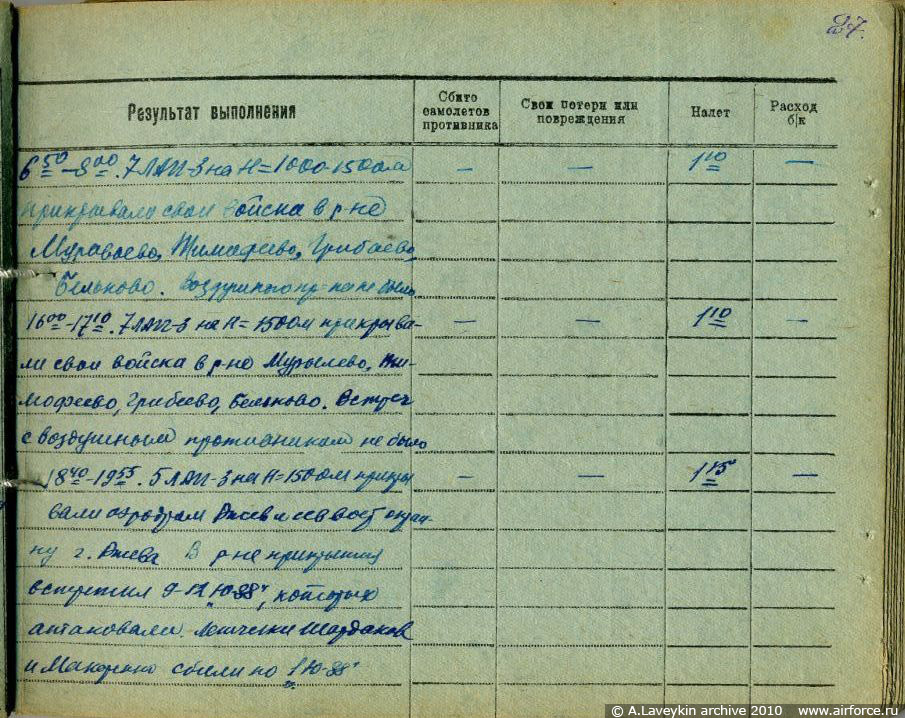 27.
Результат выполнения
Сбито самолетов противника
Свои потери или повреждения
Налет
Расход б/к
6 50 – 8 00. 7 ЛАГГ-3 на Н=1000-1500м — — 1 10 —
прикрывали свои войска в р-не
Муравьево, Тимофеево, Грибеево,
Бельково. Воздушного пр-ка не было
16 00 - 17 10. 7 ЛАГГ-3 на Н=1500м прикрыва- — — 1 10 —
ли свои войска в р-не Мурылево, Ти-
мофеево, Грибеево, Бельково. Встреч
с воздушным противником не было
18 40 - 19 55. 5 ЛАГГ-3 на Н=1500м прикры — — 1 15 —
вали аэродром Ржев и сев вост окраи-
ну г. Ржева В р-не прикрытия
встретил 9-12 Ю-88", которых
атаковали. Летчики Шардаков
и Макаренко сбили по 1 Ю-88"
© A.Laveykin archive 2010 www.airforce.ru